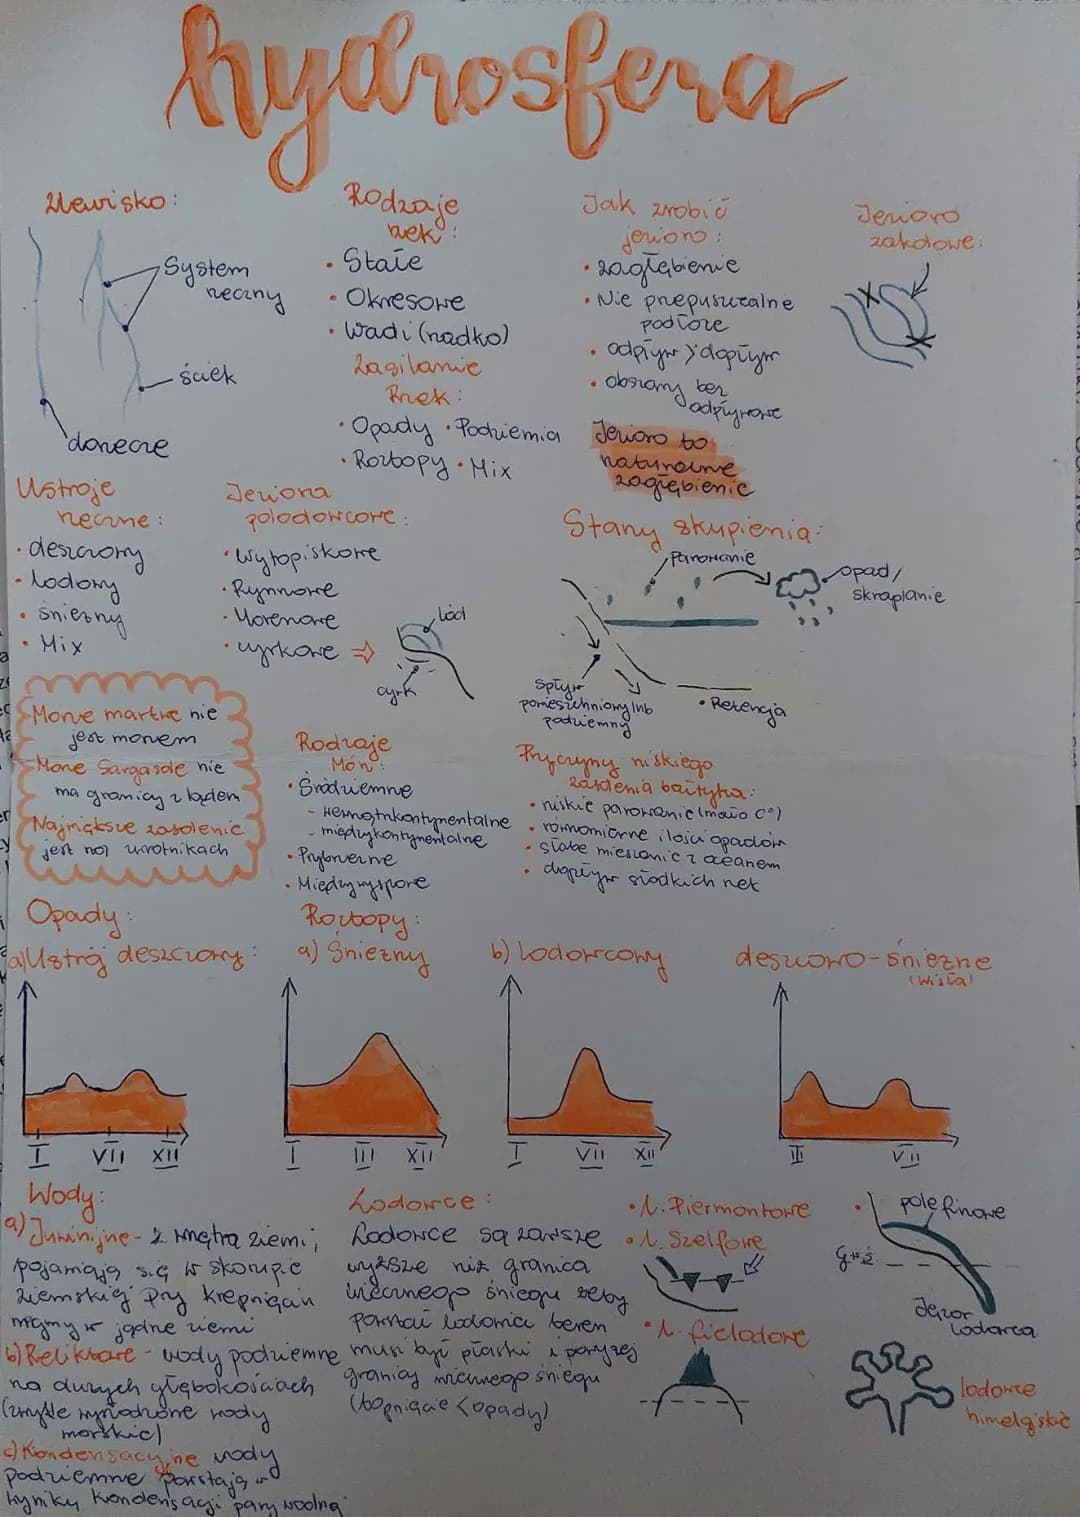 hydrosfera
Zlewisko:
System
rzeczny
ściek
dorzecze
Rodzaje
rzek:
• Stałe
• Okresowe
• Wadi (rzadko)
Zasilanie
Rzek:
• Opady • Podziemia
• Roztopy • Mix
Jak zrobić
jezioro:
• zagłębienie
• Nie przepuszczalne
podłoże
• odpływ > dopływ
• obszary bez
odpływowe
Jezioro to
naturalne
zagłębienie
Jezioro
zakolowe:
Ustroje
rzeczne:
• deszczowy
• lodowy
• śnieżny
• Mix
Jeziora
polodowcowe:
• Wytopiskowe
• Rynnowe
• Morenowe
• cyrkowe ⇒
lód
cyrk
Stany skupienia:
Parowanie
opad/
skraplanie
Spływ
powierzchniowy lub
podziemny
• Retencja
Morze martwe nie
jest morzem
Morze Sargasole nie
ma granicy z lądem
Największe zasolenie
jest na zwrotnikach
Rodzaje
Mórz:
• Śródziemne
- wewnątrzkontynentalne
- międzykontynentalne
• Przybrzeżne
• Międzywyspowe
Przyczyny niskiego
zasolenia bałtyku:
• niskie parowanie (mało C°)
• równomierne ilości opadów
• słabe mieszanie z oceanem
• dopływ słodkich rzek
Opady:
a) Ustrój deszczowy:
I VII XII
Roztopy:
a) Śnieżny
I III XII
b) lodowcowy
I VII XII
deszczowo-śnieżne
(Wisła)
III VII
Wody:
a) Juwinijne - z wnętrza ziemi;
pojawiają się w skorupie
ziemskiej przy krepnięciu
magmy w jądrze ziemi
b) Reliktowe - wody podziemne
na dużych głębokościach
(zwykle
morskie)
c) Kondensacyjne wody
podziemne Powstają w
wyniku kondensacji pary wodnej
Lodowce:
Lodowce są zawsze
wyższe niż granica
wiecznego śniegu żeby
powstał lodowiec teren
musi być płaski i powyżej
granicy wiecznego śniegu
(topnięcie < opady)
• l. Piermontowe
• l. Szelfowe
• l. fieldowe
• pole firnowe
G.w.ś.
Jęzor
lodowca
lodowce